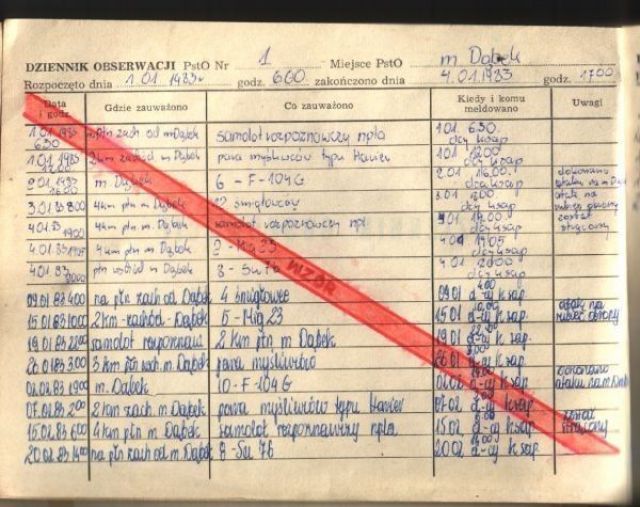 DZIENNIK OBSERWACJI PstO Nr 1 Miejsce PstO m Dąbek
Rozpoczęto dnia 1.01.1983r godz. 600 zakończono dnia 4.01.1983 godz. 1700
Data i godz. Gdzie zauważono Co zauważono Kiedy i komu meldowano Uwagi
1.01.1983 630 płn zach od m Dąbek samolot rozpoznawczy npla 1.01. 6.30 dcy ksap
1.01.1983 2km zachód m Dąbek para myśliwców typu Harier 1.01 1200 dcy ksap
2.01.1983 m. Dąbek 6 - F-104G 2.01 16.00 dca ksap dokonano ataku na m Dąbek
3.01.83 800 4km płn m. Dąbek 12 śmigłowców 3.01 800 dcy ksap atak na
4.01.83 1400 4km płn m. Dąbek samolot rozpoznawczy npl 14.00 dcy ksap został strącony
4.01.83 4km płn m Dąbek 2 - Mig 23 4.01 1905 dcy ksap
4.01.83 2000 płn wschód m Dąbek 3 - Su 7 4.01 2000 dcy ksap
WZÓR
09.01.83 400 na płn zach od Dąbek 4 śmigłowce 09.01 4.00 d-cy k sap
15.01.83 1000 2km-zachód-Dąbek 5 - Mig 23 15.01 d-cy k sap atak na rubież obrony
19.01.83 samolot rozpoznaw 2 km płn m Dąbek 19.01 d-cy k sap
26.01.83 300 3 km płn zach m Dąbek para myśliwców 26.01 d-cy k sap
02.02.83 1900 m. Dąbek 10 - F-104 G 02.02 d-cy k sap dokonano ataku na m Dąbek
07.02.83 200 2 km zach m Dąbek para myśliwców typu Harier 07.02 d-cy k sap
15.02.83 600 4km płn m Dąbek samolot rozpoznawczy npla 15.02 d-cy k sap został strącony
20.02.83 1400 na płn zach od m Dąbek 8 - Su 76 20.02 d-cy k sap